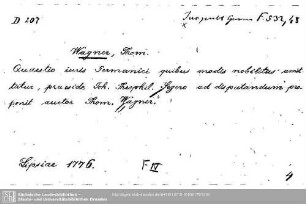 D 207
Jus publ. Germ. F 532, 48
Wagner, Thom.
Quaestio iuris Germanici quibus modis nobilitas amit-
titur, praeside Joh. Theophil. Segero ad disputandum pro-
ponit auctor Thom. Wagner.
Lipsiae 1776.
F IV
4
Sächsische Landesbibliothek -
Staats- und Universitätsbibliothek Dresden